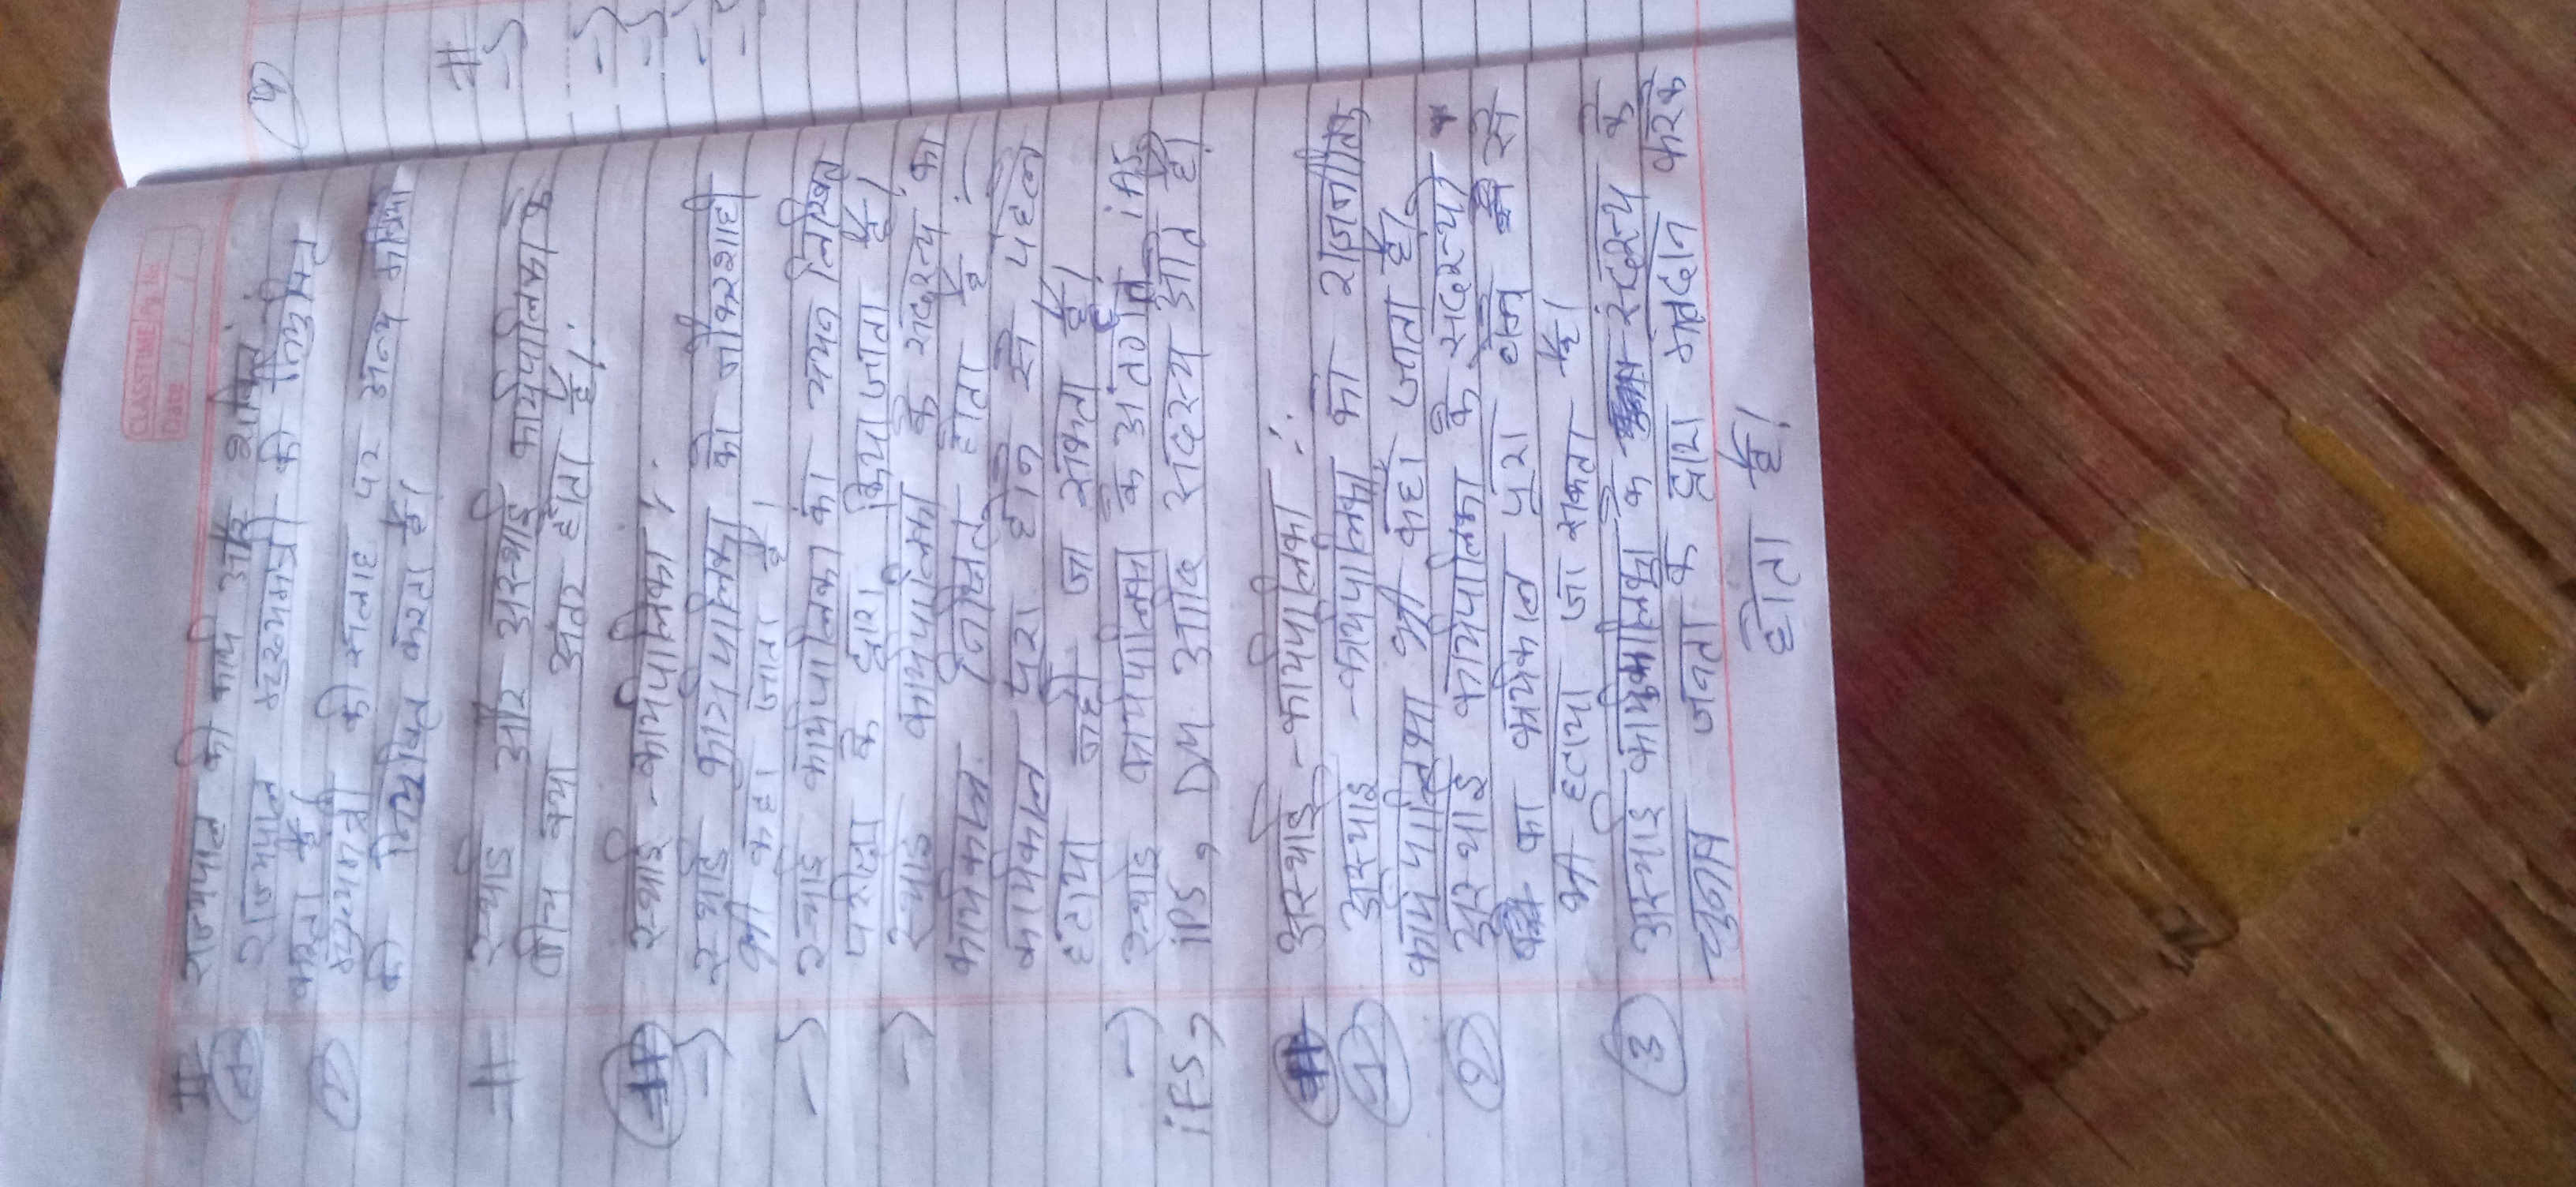 CLASSTIME Pg. No.
Date / /
# राज्यपाल की कार्य और शक्ति
राज्यपाल मुख्यमंत्री की नियुक्ति
करता है
① मुख्यमंत्री की सलाह पर अन्य मंत्रियों
की नियुक्ति करता है।
# स्थाई और अस्थाई कार्यपालिका के
बीच क्या अंतर होता है।
# स्थाई - कार्यपालिका :-
→ स्थाई कार्यपालिका को नौकरशाही
भी कहा जाता है।
→ स्थाई कार्यपालिका का चयन लिखित
परीक्षा के द्वारा किया जाता है।
→ स्थाई कार्यपालिका के सदस्य का
कार्यकाल निश्चित होता है :-
कार्यकाल पूरा होने से पहले
हटाया नही जा सकता है।
→ स्थाई कार्यपालिका के अंतर्गत IAS
IFS, IPS, DM आदि सदस्य आते है।
# अस्थाई - कार्यपालिका :-
① अस्थाई - कार्यपालिका को राजनीतिक
कार्यपालिका भी कहा जाता है।
② अस्थाई कार्यपालिका के सदस्यो
का कार्यकाल पूरा होने से
भी हटाया जा सकता है।
③ अस्थाई कार्यपालिका के सदस्य के
चुनाव जनता के द्वारा मतदान करके
होता है।
# →
→
→
→
→